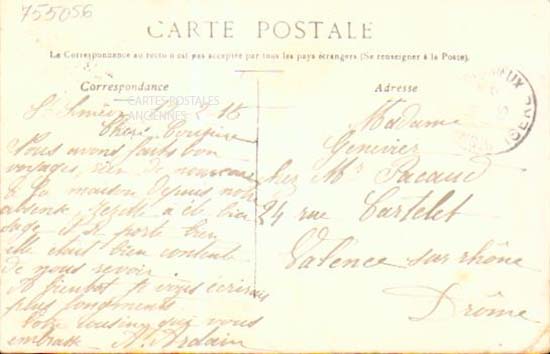 755056
CARTE POSTALE
La Correspondance au recto n'est pas acceptée par tous les pays étrangers (Se renseigner à la Poste).
Correspondance
Adresse
CARTES POSTALES
ANCIENNES
ISERE
18
Chère Cousine
Nous avons faits bon
voyages, rien de nouveau
à la maison depuis notre
absense, a été bien
sage et se porte bien
elle était bien contente
de nous revoir.
A bientot je vous écrirai
plus longuement
Votre cousine qui vous
embrasse A. Ardain
Madame
Genevier
chez Mr Pacaud
24 rue Cartelet
Valence sur rhône
Drôme